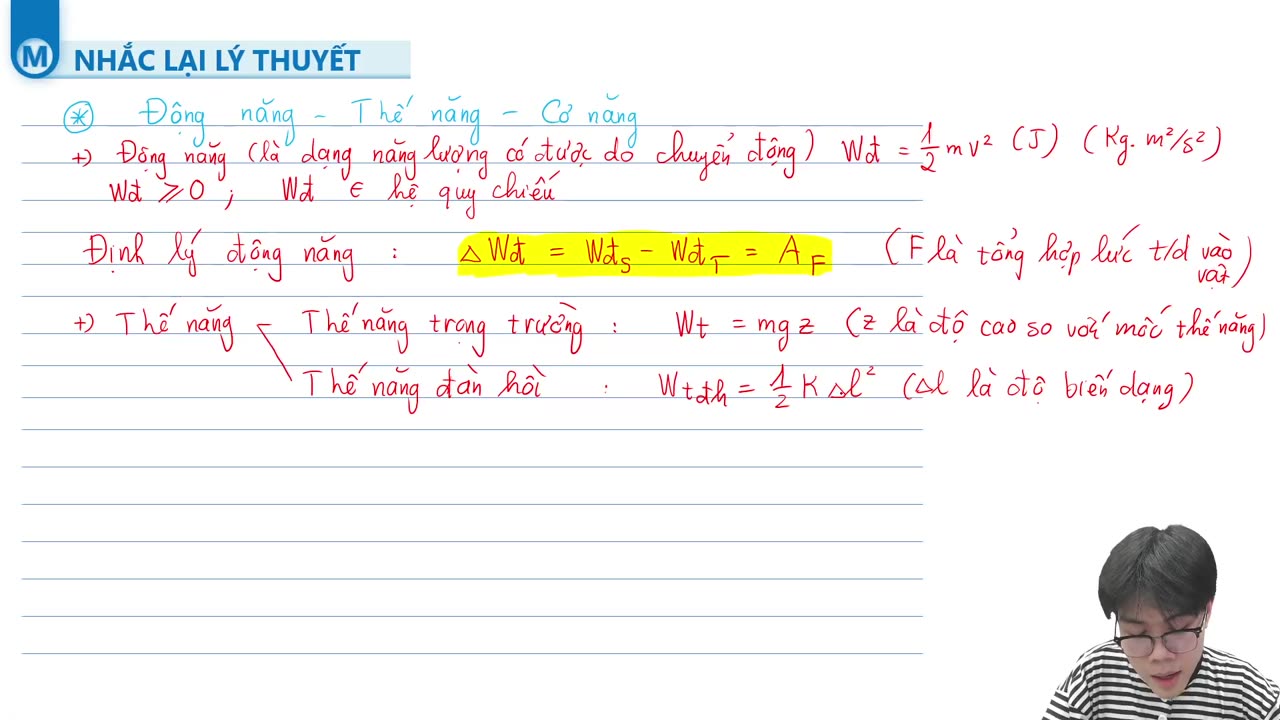 M NHẮC LẠI LÝ THUYẾT
* Động năng - Thế năng - Cơ năng
+) Động năng (là dạng năng lượng có được do chuyển động) Wđ = 1/2 mv² (J) (Kg.m²/s²)
Wđ ⩾ 0 ; Wđ ∈ hệ quy chiếu
Định lý động năng : △Wđ = WđS - WđT = AF (F là tổng hợp lức t/d vào vật)
+) Thế năng Thế năng trọng trường : Wt = mgz (z là độ cao so với mốc thế năng)
Thế năng đàn hồi : Wtđh = 1/2 K △l² (△l là độ biến dạng)